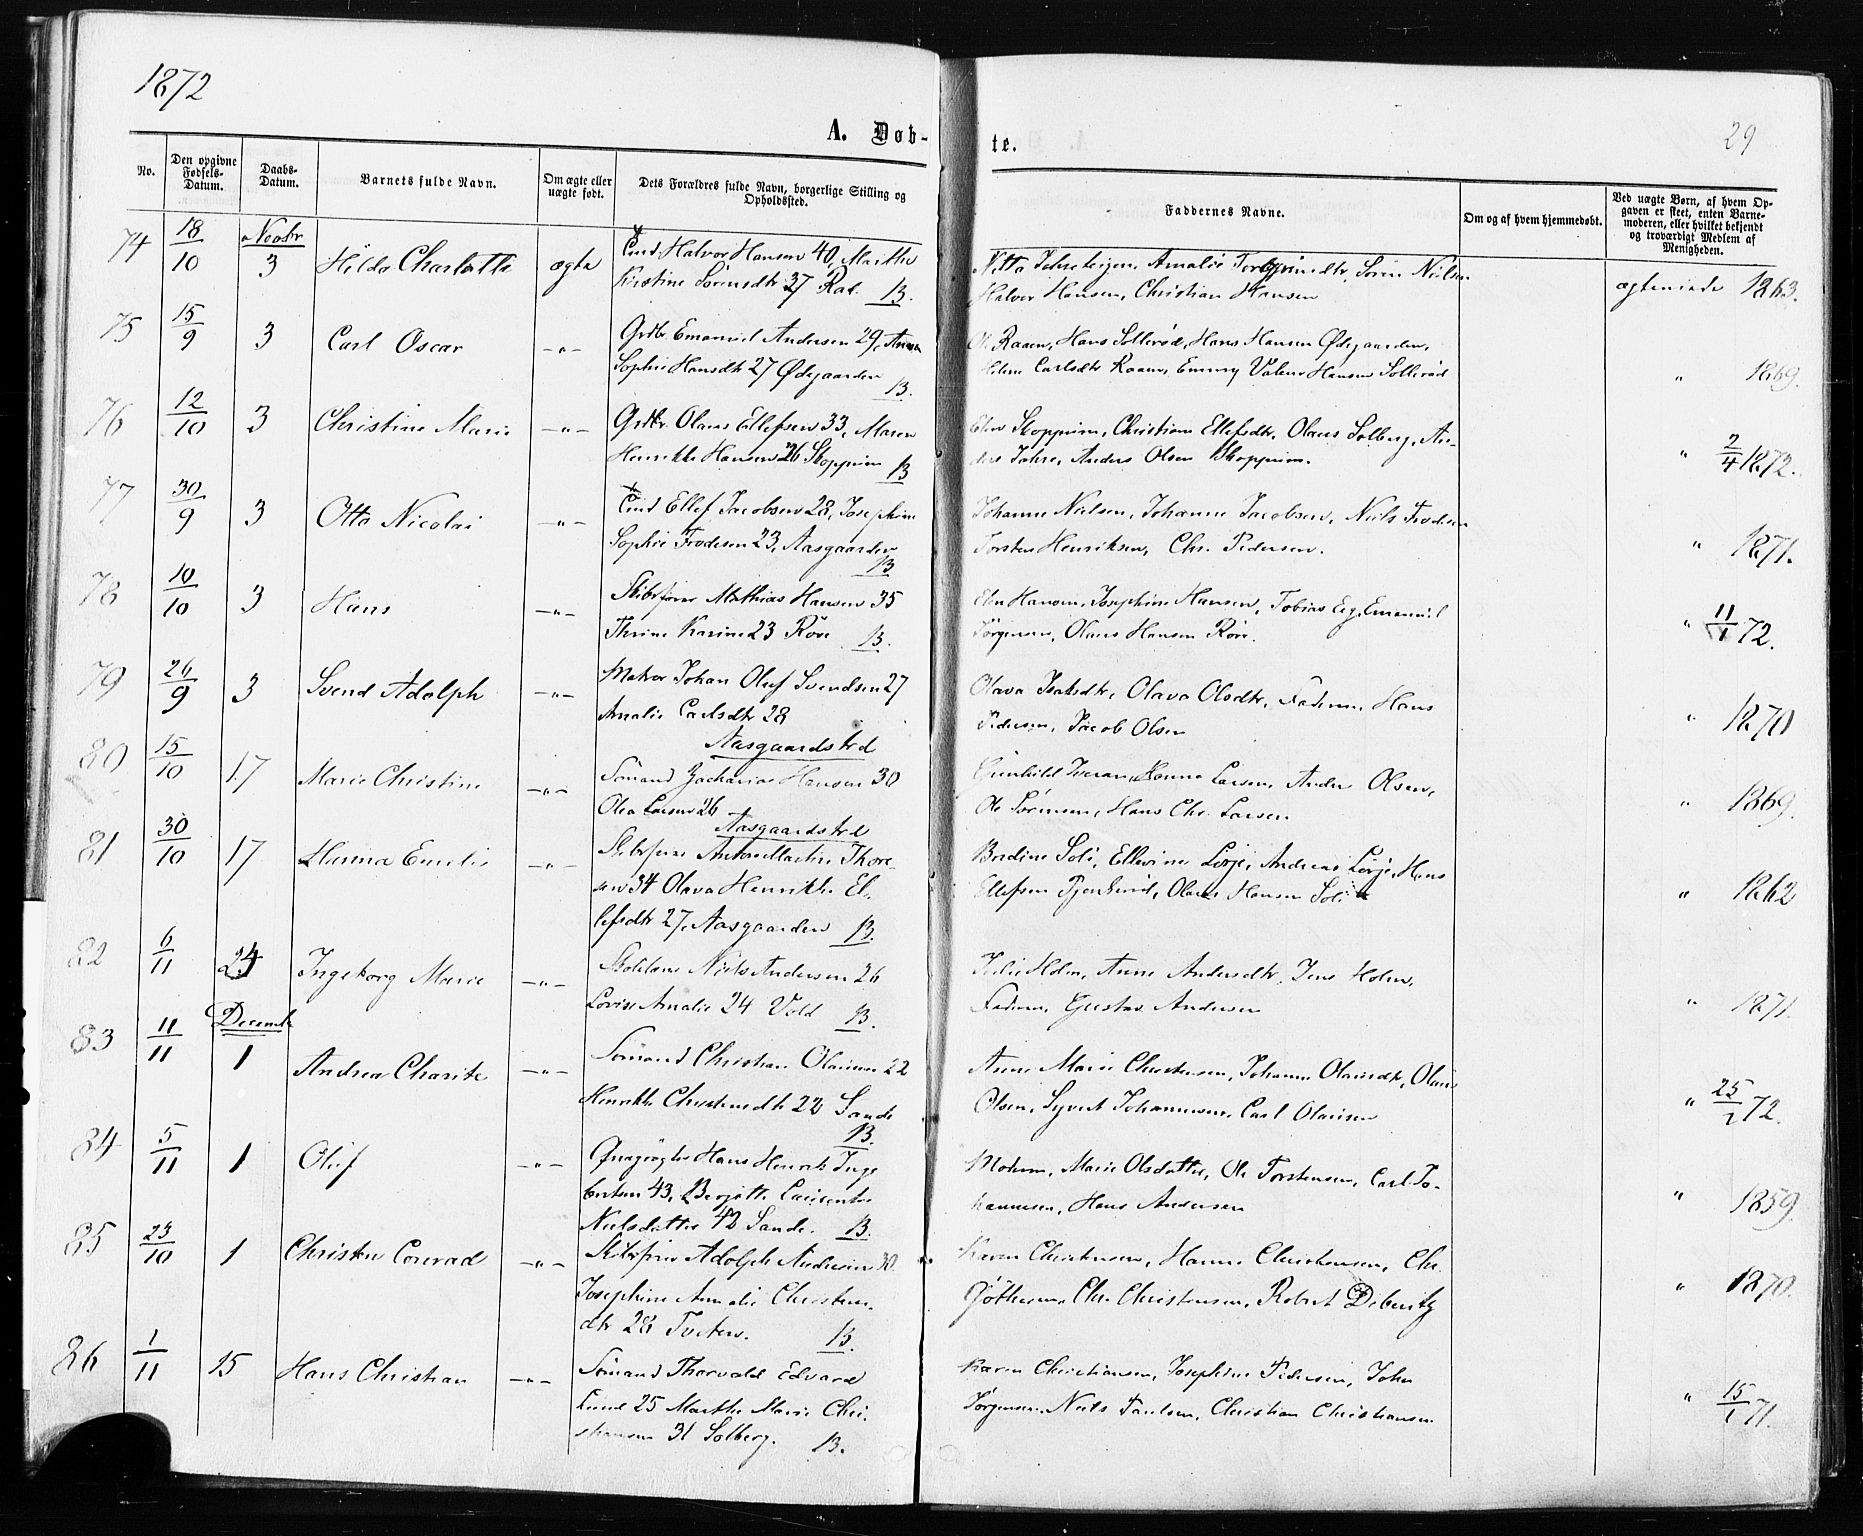 1872
A. Døb-
te.
29
No.
Den opgivne Fødsels-Datum.
Daabs-Datum.
Barnets fulde Navn.
Om ægte eller uægte født.
Dets Forældres fulde Navn, borgerlige Stilling og Opholdssted.
Faddernes Navne.
Om og af hvem hjemmedøbt.
Ved uægte Børn, af hvem Opgaven er skeet, enten Barnemoderen, eller hvilket bekjendt og troværdigt Medlem af Menigheden.
74 18/10 Novbr 3 Hilda Charlotte ægte Halvor Hansen 40, Marthe
Kirstine Sörensdtr 37 Ral. B.
Sören Nielsen
Halvor Hansen, Christian Hansen
1863.
75 15/9 3 Carl Oscar -"- Grdbr Emanuel Andersen 29, Anna
Sophie Hansdtr 27 Ødegaarden B.
Raaen, Hans Sollerød, Hans Hansen Ødegaarden,
Carlsdtr Raaen, Emmy Hansen Sollerød
" 1869.
76 12/10 3 Christine Marie -"- Grdbr. Olaus Ellefsen 33, Maren
Henrikke Hansen 26 Skoppum B
Skoppum, Christiane Ellefsdtr, Olaus Solberg, An-
ders Anders Olsen Skoppum.
" 2/4 1872.
77 30/9 3 Otto Nicolai -"- Ellef Jacobsen 28, Josephine
Sophie Frodesen 23, Aasgaarden B
Johanne Nielsen, Johanne Jacobsen, Niels Frodesen
Torsten Henriksen, Chr. Pedersen.
" 1871.
78 10/10 3 Hans -"- Skibsfører Mathias Hansen 35
Thrine Karine 23 Röre B.
Elen Hansen, Josephine Hansen, Tobias Eeg, Emanuel
Jørgensen, Olaus Hansen Röre.
" 11/1 72.
79 26/9 3 Svend Adolph -"- Matros Johan Oluf Svendsen 27
Amalie Carlsdtr 28
Aasgaardstrd
Olava Isaksdtr, Olava Olsdtr, Faderen, Hans
Pedersen, Jacob Olsen
" 1870
80 15/10 17 Marie Christine -"- Sömand Zacharias Hansen 30
Olea Larsen 26
Aasgaardstrd
Gunhild Hanna Larsen, Anders Olsen,
Ole Sörensen, Hans Chr. Larsen
" 1869.
81 30/10 17 Hanna Emilie -"- Skibsfører Anton Martin Thore-
sen 34 Olava Henrikke El-
lefsdtr 27, Aasgaarden B.
Berdine Soli, Ellevine Lörje, Andreas Lörje, Hans
Ellefsen Olaus Hansen Soli
" 1862
82 6/11 24 Ingeborg Marie -"- Niels Andersen 26
Lovise Amalie 24 Vold B.
Julie Holm, Anne Andersdtr, Jens Holm,
Faderen, Gustav Andersen
" 1871.
83 11/11 Decemb 1 Andrea Charite -"- Sömand Christian Olausen 22
Henrikke Christensdtr 22 Sande B.
Anne Marie Christensen, Johanne Olausdtr, Olaus
Olsen, Syvert Johannesen, Carl Olausen
" 25/1 72.
84 5/11 1 Oluf -"- Hans Henrik Inge
bertsen 43, Bergitte Laurentse
Nielsdatter 42 Sande. B.
Moderen, Marie Olsdatter, Ole Torstensen, Carl Jo-
hannesen, Hans Andersen
" 1859.
85 23/10 1 Christen Conrad -"- Skibsfører Adolph Andersen 30.
Josephine Amalie Christens-
dtr 28 Tveten. B.
Karen Christensen, Hanna Christensen, Chr.
Chr. Christensen, Robert Deberitz
" 1870.
86 1/11 15 Hans Christian -"- Sömand Thorvald Edvard
Lund 25 Marthe Marie Chri-
stiansen 31 Solberg. B.
Karen Christiansen, Josephine Pedersen, John
Jørgensen, Niels Paulsen, Christian Christiansen
" 15/1 71.